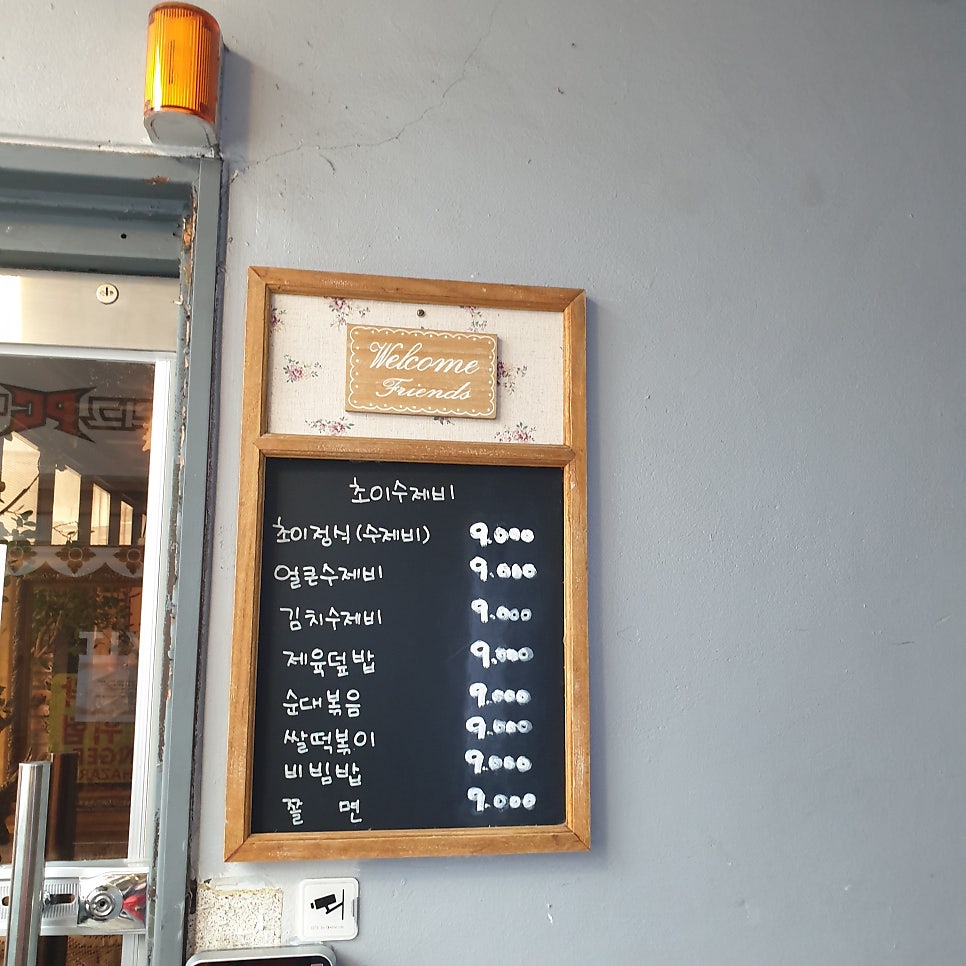 Welcome
Friends
초이수제비
초이정식(수제비) 9.000
얼큰수제비 9.000
김치수제비 9.000
제육덮밥 9.000
순대볶음 9.000
쌀떡볶이 9.000
비빔밥 9.000
쫄 면 9.000
PC
위험